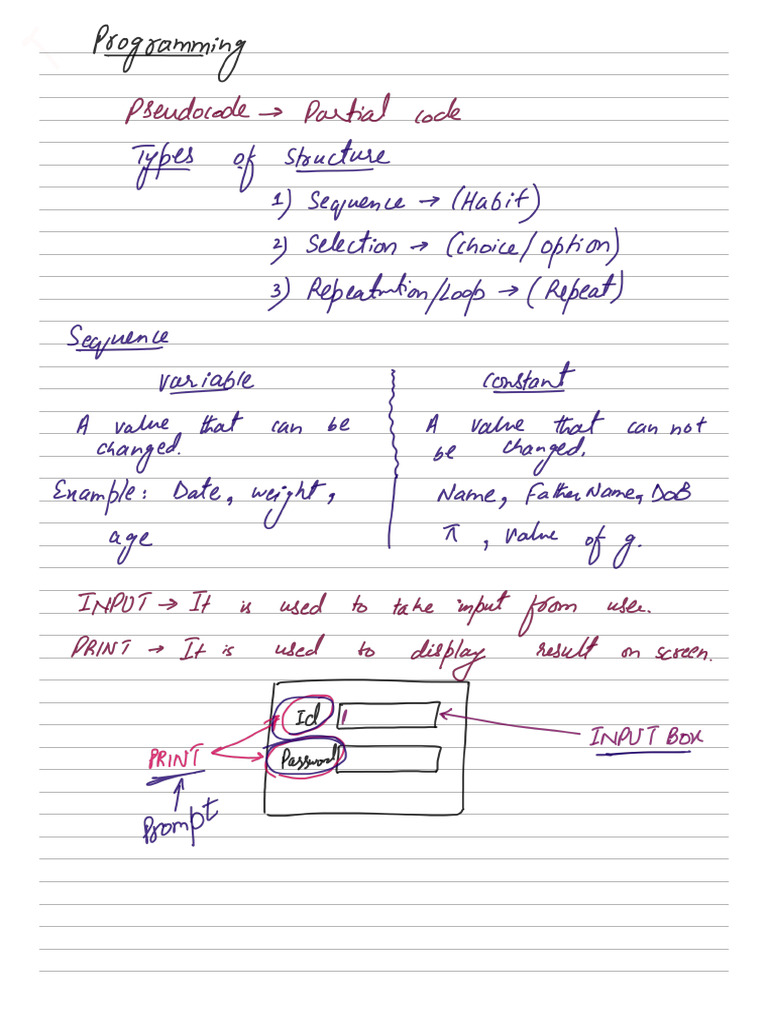 Programming
Pseudocode → Partial code
Types of Structure
1) Sequence → (Habit)
2) Selection → (choice/option)
3) Repeatation/Loop → (Repeat)
Sequence
Variable
Constant
A value that can be
changed.
A value that can not
be changed.
Example: Date, weight,
age
Name, Father Name, DoB
π, value of g.
INPUT → It is used to take input from user.
PRINT → It is used to display result on screen.
Id
INPUT BOX
PRINT
Password
Prompt